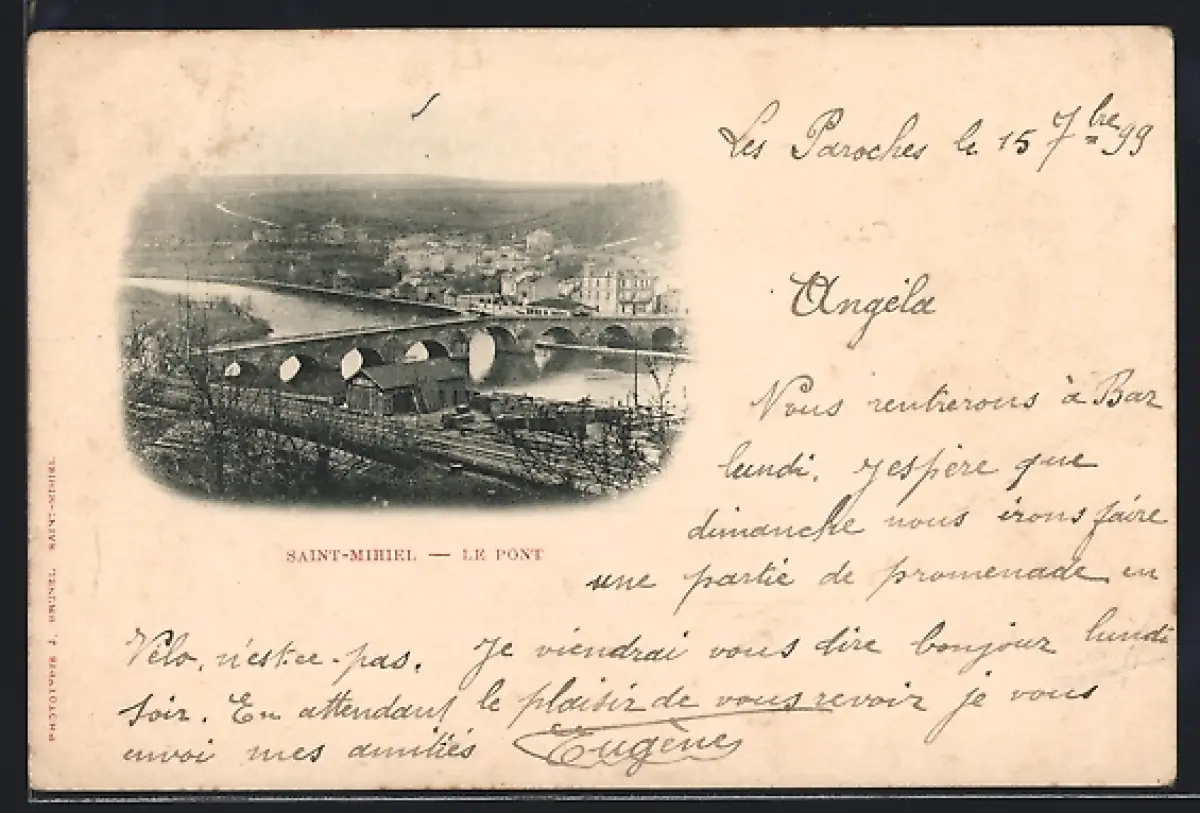 Les Paroches le 15 7bre 99
Angéla
Nous rentrerons à Bar
lundi. J'espère que
dimanche nous irons faire
une partie de promenade en
Vélo, n'est-ce-pas. Je viendrai vous dire bonjour lundi
soir. En attendant le plaisir de vous revoir je vous
envoi mes amitiés Eugène
SAINT-MIHIEL — LE PONT